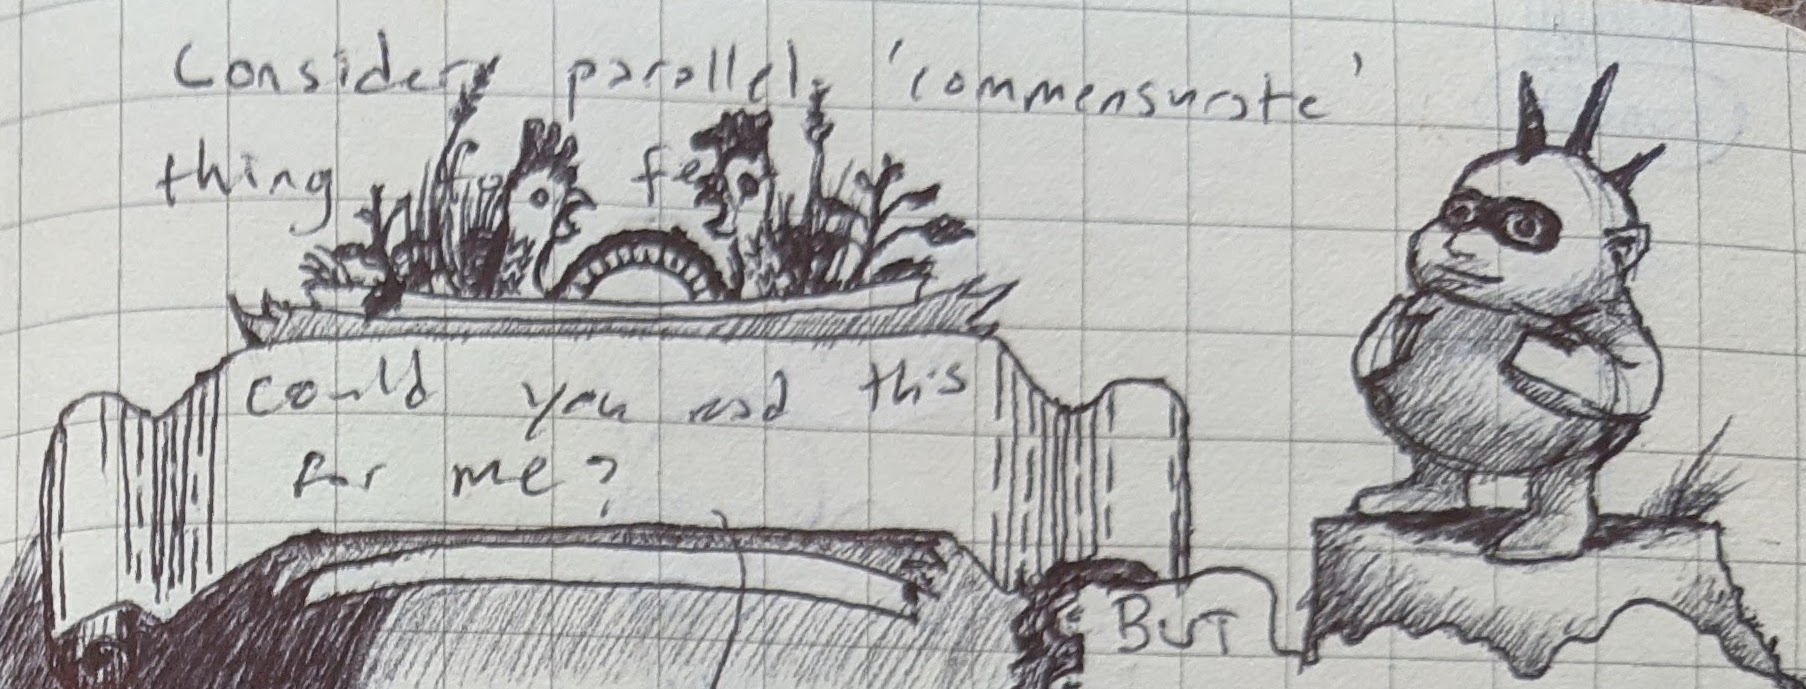 Consider parallel, 'commensurate'
thing
Could you read this
for me?
BUT